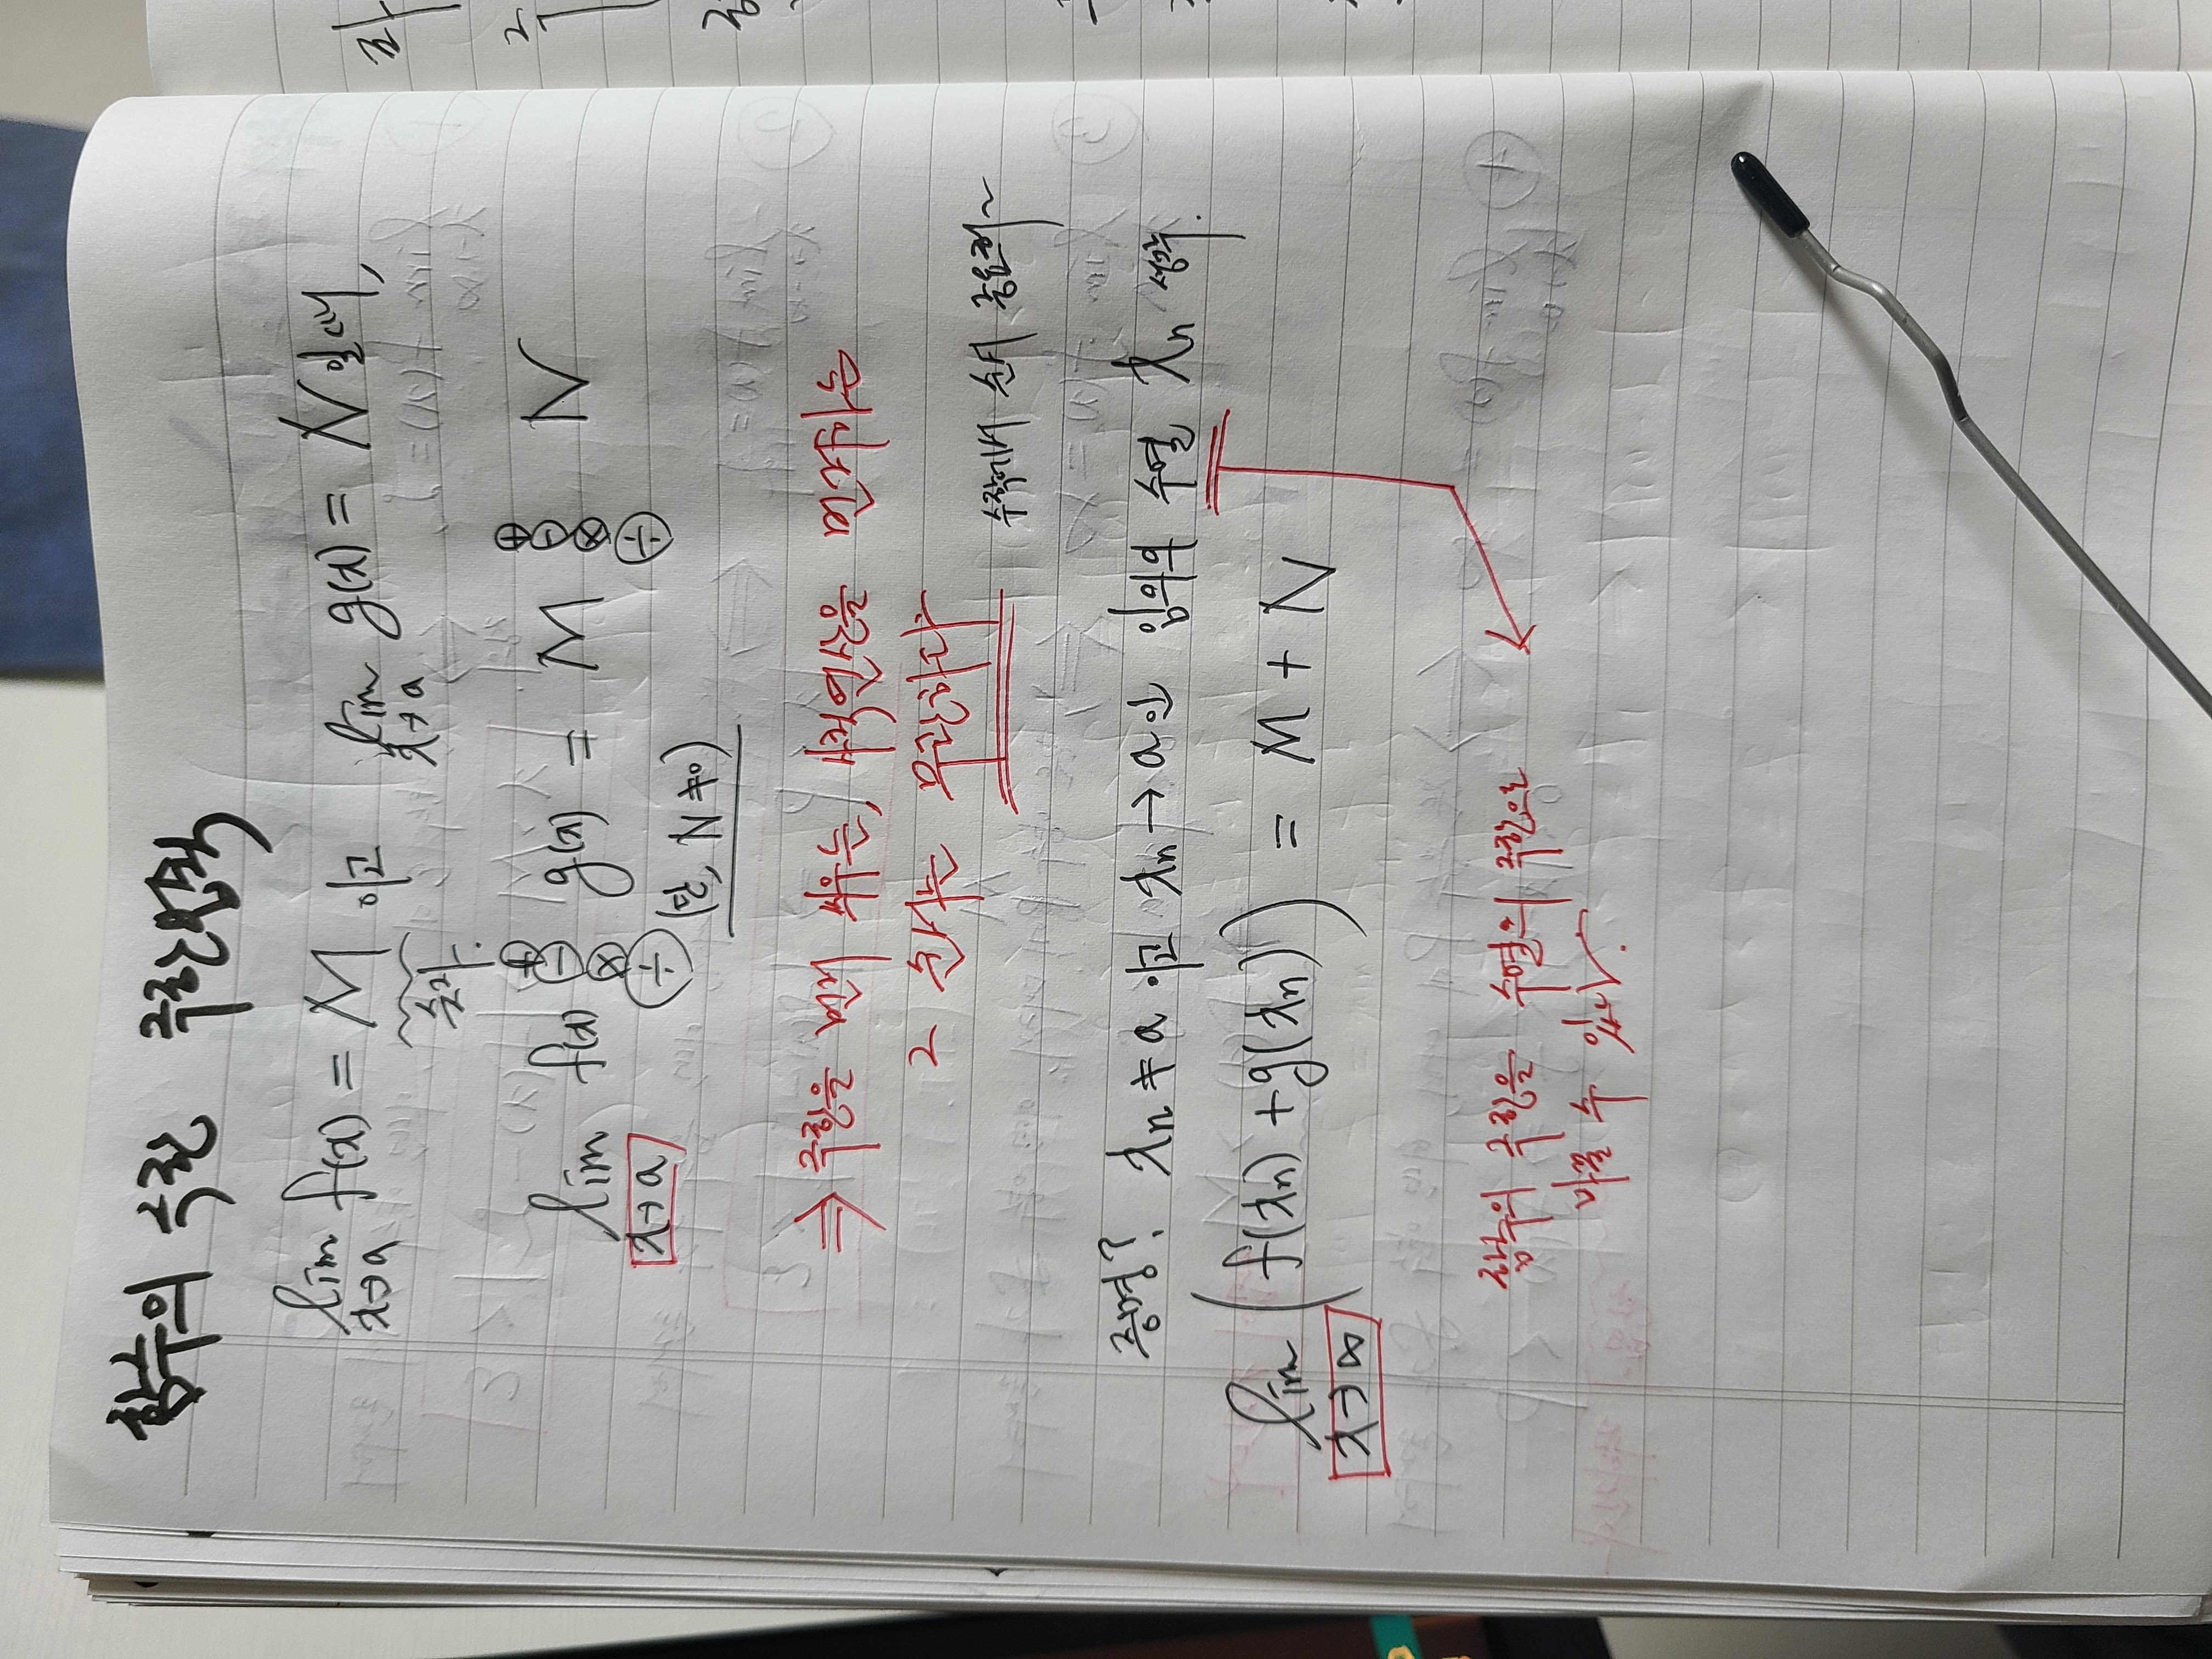 함수의 극한 극한법칙
lim f(x) = M 이고 lim g(x) = N 일때,
x→a x→a
숫자.
lim f(x) ⊕ ⊖ ⊗ ÷ g(x) = M ⊕ ⊖ ⊗ ÷ N
x→a
(단, N ≠ 0)
⇒ 극한을 먼저 씌우는, 사칙연산을 먼저하는
그 순서는 무관하다
수학에서 순서 중요해~
증명? xn ≠ a 이고 xn → a 인 임의의 수열 xn 생각.
lim (f(xn) + g(xn)) = M + N
x→∞
함수의 극한을 수열의 극한으로
바꿀 수 있다.